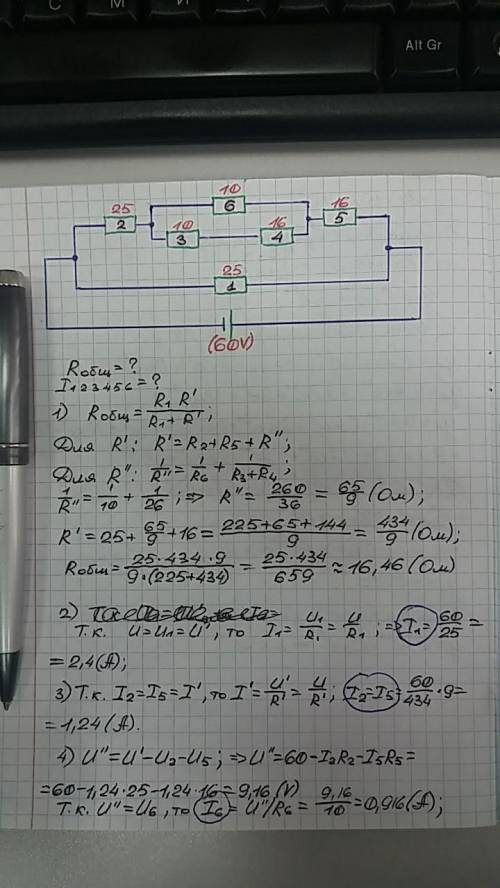 Alt Gr
10
25 6 16
2 10 16 5
3 4
25
1
(60V)
Rобщ = ?
I1 2 3 4 5 6 = ?
1) Rобщ = R1 R' / R1 + R' ;
Для R': R' = R2 + R5 + R'' ;
Для R'': 1/R'' = 1/R6 + 1/R3+R4 ;
1/R'' = 1/10 + 1/26 ; => R'' = 260/36 = 65/9 (Ом) ;
R' = 25 + 65/9 + 16 = 225+65+144 / 9 = 434/9 (Ом) ;
Rобщ = 25·434·9 / 9·(225+434) = 25·434 / 659 ≈ 16,46 (Ом)
2)
Т.к. U = U1 = U', то I1 = U1/R1 = U/R1 ; => I1 = 60/25 =
= 2,4 (А) ;
3) Т.к. I2 = I5 = I', то I' = U'/R' = U/R' ; I2 = I5 = 60/434 · 9 =
= 1,24 (А).
4) U'' = U' - U2 - U5 ; => U'' = 60 - I2R2 - I5R5 =
= 60 - 1,24·25 - 1,24·16 = 9,16 (V)
Т.к. U'' = U6, то I6 = U''/R6 = 9,16/10 = 0,916 (А) ;